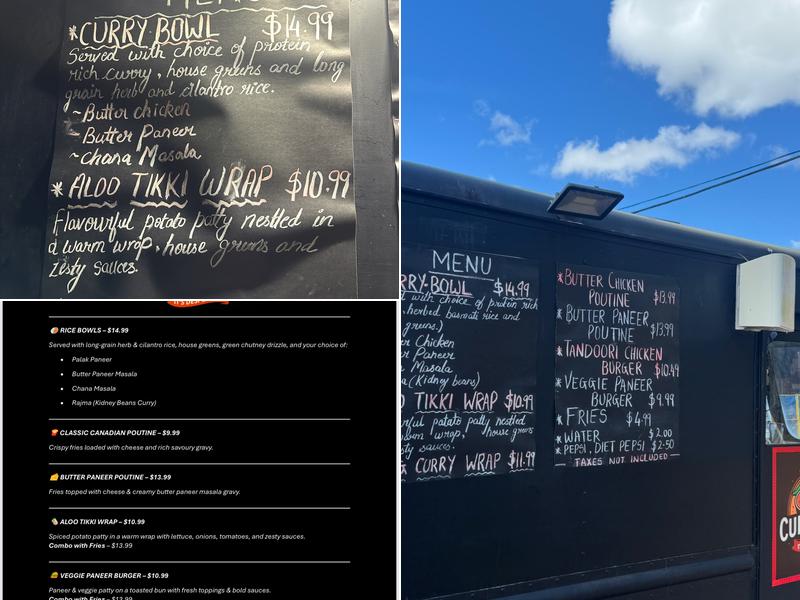 MENU
*CURRY BOWL $14.99
Served with choice of protein
rich curry, house greens and long
grain herb and cilantro rice.
~Butter chicken
~Butter Paneer
~Chana Masala
*ALOO TIKKI WRAP $10.99
Flavourful potato patty nestled in
a warm wrap, house greens and
zesty sauces.
RICE BOWLS – $14.99
Served with long-grain herb & cilantro rice, house greens, green chutney drizzle, and your choice of:
• Palak Paneer
• Butter Paneer Masala
• Chana Masala
• Rajma (Kidney Beans Curry)
CLASSIC CANADIAN POUTINE – $9.99
Crispy fries loaded with cheese and rich savoury gravy.
BUTTER PANEER POUTINE – $13.99
Fries topped with cheese & creamy butter paneer masala gravy.
ALOO TIKKI WRAP – $10.99
Spiced potato patty in a warm wrap with lettuce, onions, tomatoes, and zesty sauces.
Combo with Fries – $13.99
VEGGIE PANEER BURGER – $10.99
Paneer & veggie patty on a toasted bun with fresh toppings & bold sauces.
Combo with Fries – $13.99
MENU
RRY BOWL $14.99
with choice of protein rich
, herbed basmati rice and
greens)
Chicken
Paneer
Masala
(Kidney beans)
TIKKI WRAP $10.99
potato patty nestled
wrap, house greens
sty sauces.
CURRY WRAP $11.99
*BUTTER CHICKEN
POUTINE $13.99
*BUTTER PANEER
POUTINE $13.99
*TANDOORI CHICKEN
BURGER $10.49
*VEGGIE PANEER
BURGER $9.99
*FRIES $4.99
*WATER $2.00
*PEPSI, DIET PEPSI $2.50
TAXES NOT INCLUDED
CU